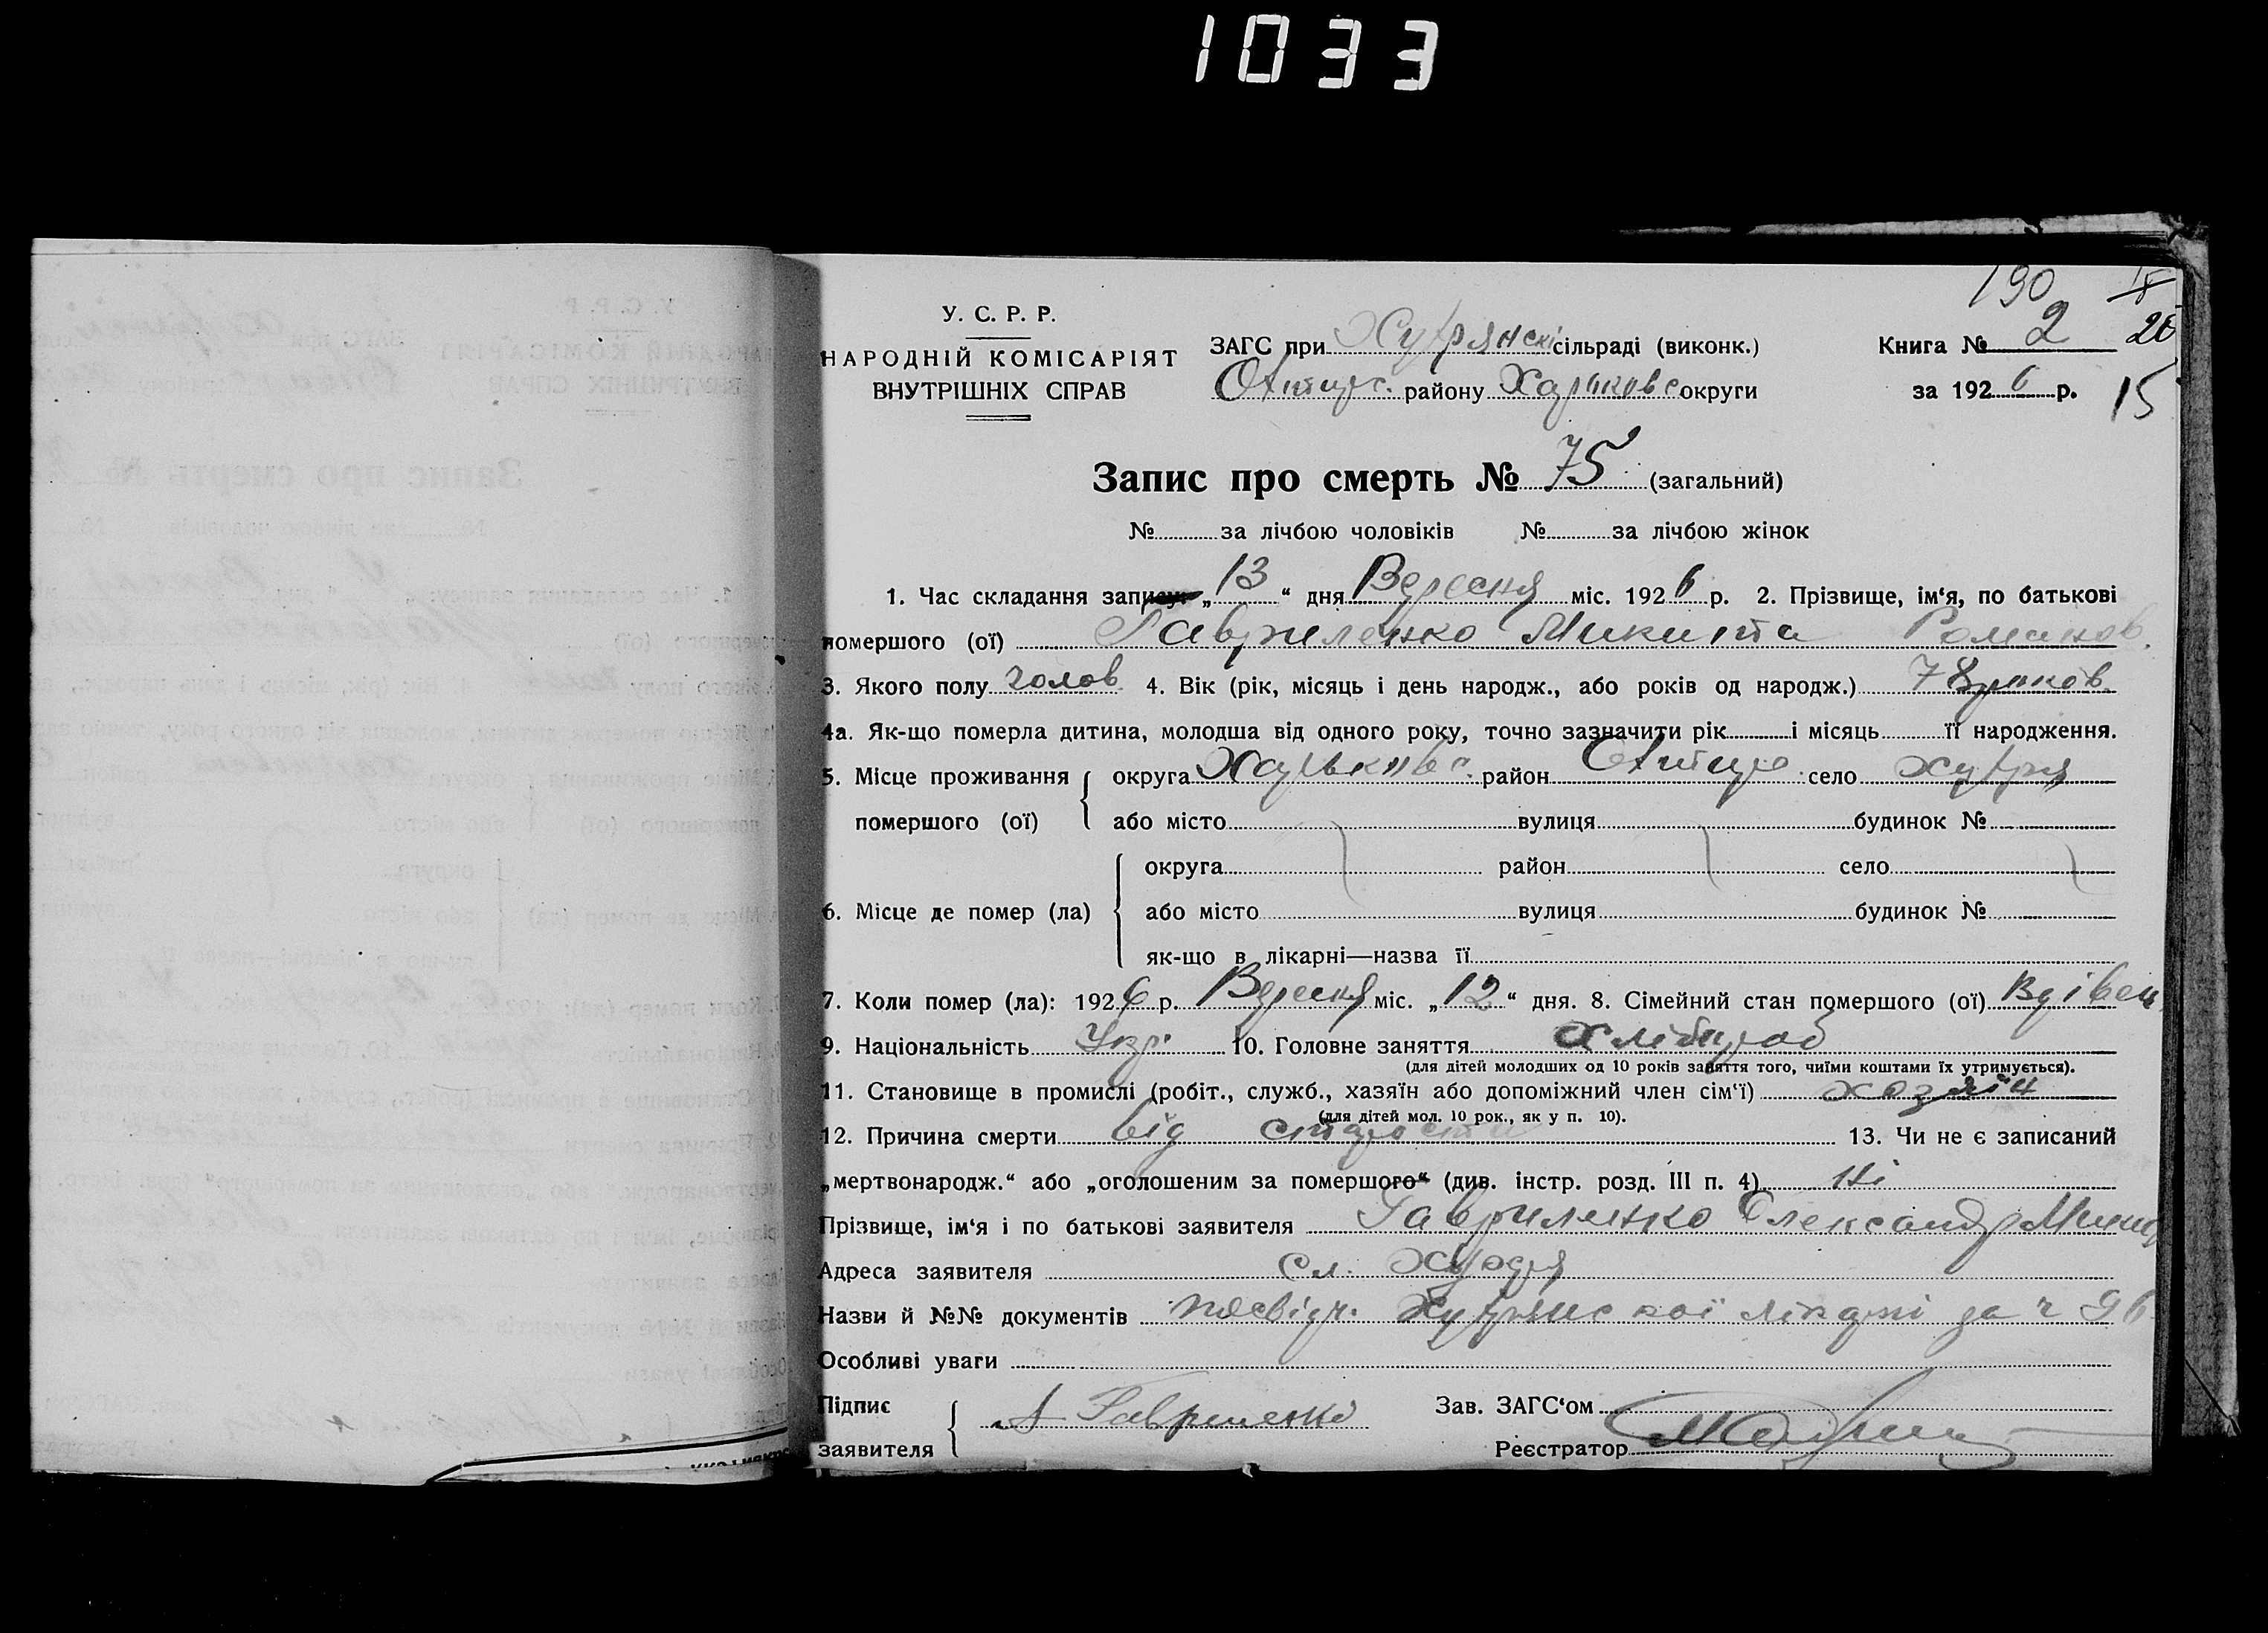 1033
190
У. С. Р. Р.
НАРОДНІЙ КОМІСАРІЯТ
ВНУТРІШНІХ СПРАВ
ЗАГС при сільраді (виконк.)
району Харковс округи
Книга № 2 20
за 1926 р. 15
Запис про смерть № 75 (загальний)
№ за лічбою чоловіків № за лічбою жінок
1. Час складання запису: „13“ дня Вересня міс. 1926 р. 2. Прізвище, ім‘я, по батькові
помершого (ої) Гавриленко Микита Романов.
3. Якого полу чолов. 4. Вік (рік, місяць і день народж., або років од народж.) 78 роков.
4а. Як-що померла дитина, молодша від одного року, точно зазначити рік і місяць її народження.
5. Місце проживання помершого (ої) округа Харьковс. район село
або місто вулиця будинок №
6. Місце де помер (ла) округа район село
або місто вулиця будинок №
як-що в лікарні—назва її
7. Коли помер (ла): 1926 р. Вересня міс. „12“ дня. 8. Сімейний стан помершого (ої) Вдівець
9. Національність Укр. 10. Головне заняття Хлібороб
(для дітей молодших од 10 років заняття того, чиїми коштами їх утримується).
11. Становище в промислі (робіт., служб., хазяїн або допоміжний член сім‘ї) хозяїн
(для дітей мол. 10 рок., як у п. 10).
12. Причина смерти від старости 13. Чи не є записаний
„мертвонародж.“ або „оголошеним за помершого“ (див. інстр. розд. III п. 4) Ні
Прізвище, ім‘я і по батькові заявителя Гавриленко Олександр
Адреса заявителя сл.
Назви й №№ документів посвідч. за ч 96
Особливі уваги
Підпис заявителя А Гавриленко
Зав. ЗАГС‘ом
Реєстратор